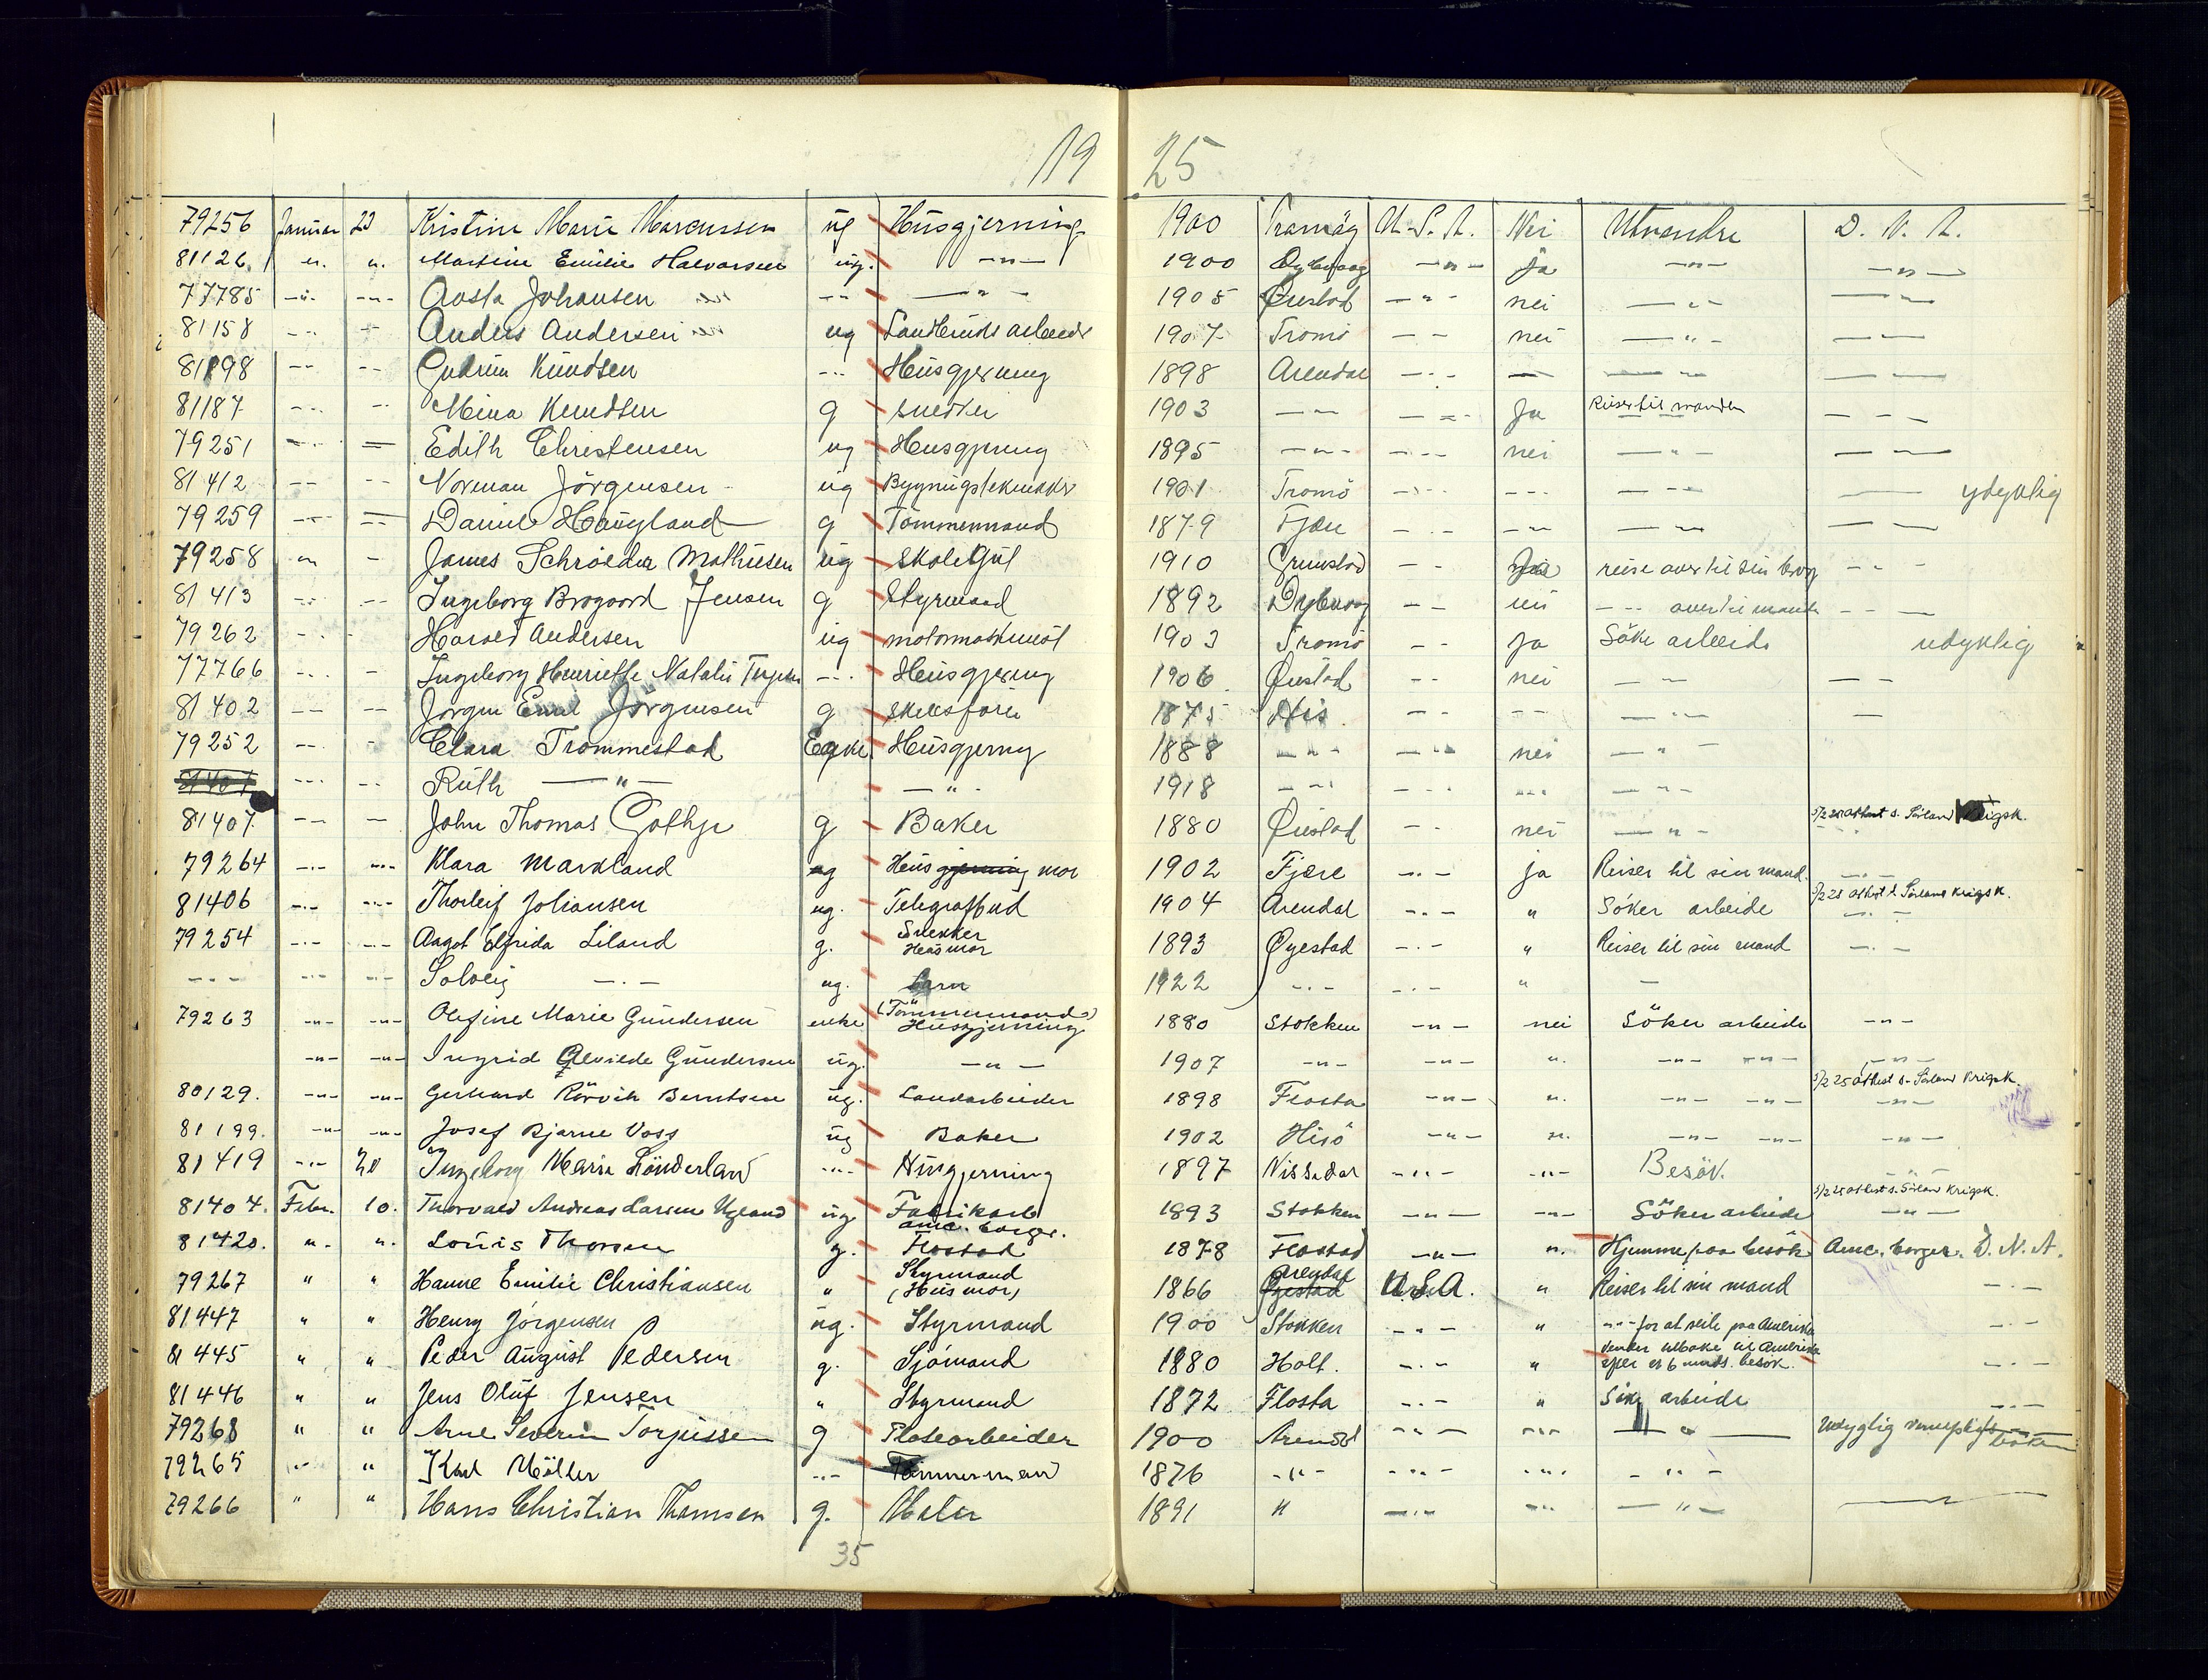 19 25
79256 Januar 23 Kristine Marie Marcussen ug Husgjerning 1900 Tromøy U.S.A. Nei Utvandre D. N. A.
81126. " " Martine Emilie Halvorsen ug. —"— 1900 Dybvaag —"— Ja —"— —"—
77785 —"— —"— Aasta Johansen —"— —"— 1905 Øiestad —"— nei —"— —"—
81158 —"— —"— Anders Andersen ug Landbruds arbeide 1907 Tromö —"— nei —"— —"—
81198 —"— —"— Gudrun Kundsen —"— Husgjerning 1898 Arendal —"— — —"— —"—
81187 —"— —"— Mina Knudsen g snekker 1903 —"— —"— Ja Reiser til manden —"—
79251 —"— —"— Edith Christensen ug Husgjerning 1895 —"— —"— nei —"— —"—
81412 —"— —"— Norman Jörgensen ug 1901 Tromö —"— —"— —"— —"—
79259 —"— —"— Daniel Haugland g Tömmermand 1879 Fjære —"— —"— —"— —"—
79258 " — James Schröeder Mathiesen ug Skolegut 1910 Grimstad —"— Ja reise over til sin —"—
81413 —"— —"— Ingeborg Brogaard Jensen g Styrmand 1892 Dybvaag —"— nei —"— over til mand —"—
79262 —"— — Harald Andersen ug motormaskinist 1903 Tromö —"— Ja Söke arbeide udyktig
77766 —"— — Ingeborg Henriette Natalie —"— Husgjerning 1906 Øiestad —"— nei —"— —"—
81402 —"— —"— Jörgen Emil Jörgensen g Skibsförer 1875 His. —"— —"— —"— —
79252 —"— — Clara Trommestad Enke Husgjerning 1888 —"— —"— nei —"—
81407 —"— —"— Ruth —"— —"— 1918 —"— —"— —"—
81407 —"— — John Thomas g Baker 1880 Øiestad —"— nei —"— 5/2 25 Attest s. Sörland Krigsk.
79264 —"— —"— Klara Markland ug Husgjerning mor 1902 Fjære —"— ja Reiser til sin mand. —"—
81406 —"— —"— Thorleif Johansen ug. Telegrafbud 1904 Arendal —"— " Söker arbeide 5/2 25 Attest s. Sörland Krigsk. —"—
79254 —"— —"— Aagot Elfrida Liland g. Snekker Husmor 1893 Øyestad —"— " Reiser til sin mand —"—
—"— —"— —"— Solveig —"— ug. barn 1922 —"— —"— " —
79263 —"— —"— Olefine Marie Gundersen enke (Tömmermand) Husgjerning 1880 Stokken —"— nei Söker arbeide —"—
—"— —"— Ingrid Alvilde Gundersen ug. —"— 1907 —"— —"— " —"— —"— —"—
80129. —"— —"— Gerhard Rörvik Berntsen ug. Landarbeider 1898 Flosta —"— " —"— —"— 5/2 25 Attest s. Sörland Krigsk. —"—
81199. —"— —"— Josef Bjarne Voss ug Baker 1902 Hisö —"— " —"— —"— —"—
81419 —"— 20 Ingeborg Maria Sönderland —"— Husgjerning 1897 Nissedal —"— —"— Besök. —"—
81404. Febr. 10. Thorvald Andreas Larsen Ugland ug Fabrikarb 1893 Stokken —"— —"— Söker arbeide 5/2 25 Attest s. Sörland Krigsk. —"—
81420. " " Louis Thorsen g. amr. borger. Flostad 1878 Flostad —"— " Hjemme paa besök Amr. borger. D. N. A.
79267 " " Hanne Emilie Christiansen " Styrmand (Husmor) 1866 Øyestad Arendal U.S.A. " Reiser til sin mand —"—
81447 " " Henry Jörgensen ug. Styrmand 1900 Stokken —"— " —"— for at seile paa Amerika —"—
81445 " " Peder August Pedersen g. Sjömand 1880 Holt. —"— " vender tilbake til Amerika efter et 6 mnds. besök. —"—
81446 " " Jens Oluf Jensen " Styrmand 1872 Flosta —"— " Söke arbeide —"—
79268 " " Arne Severin Torjussen g Platearbeider 1900 Arendal —"— —"— —"— Udyglig
79265 —"— " Karl Möller —"— Tömmermand 1876 —"— —"— —"— —"—
79266 " " Hans Christian Thomsen g. Maler 1891 " —"— —"— —"— —
35